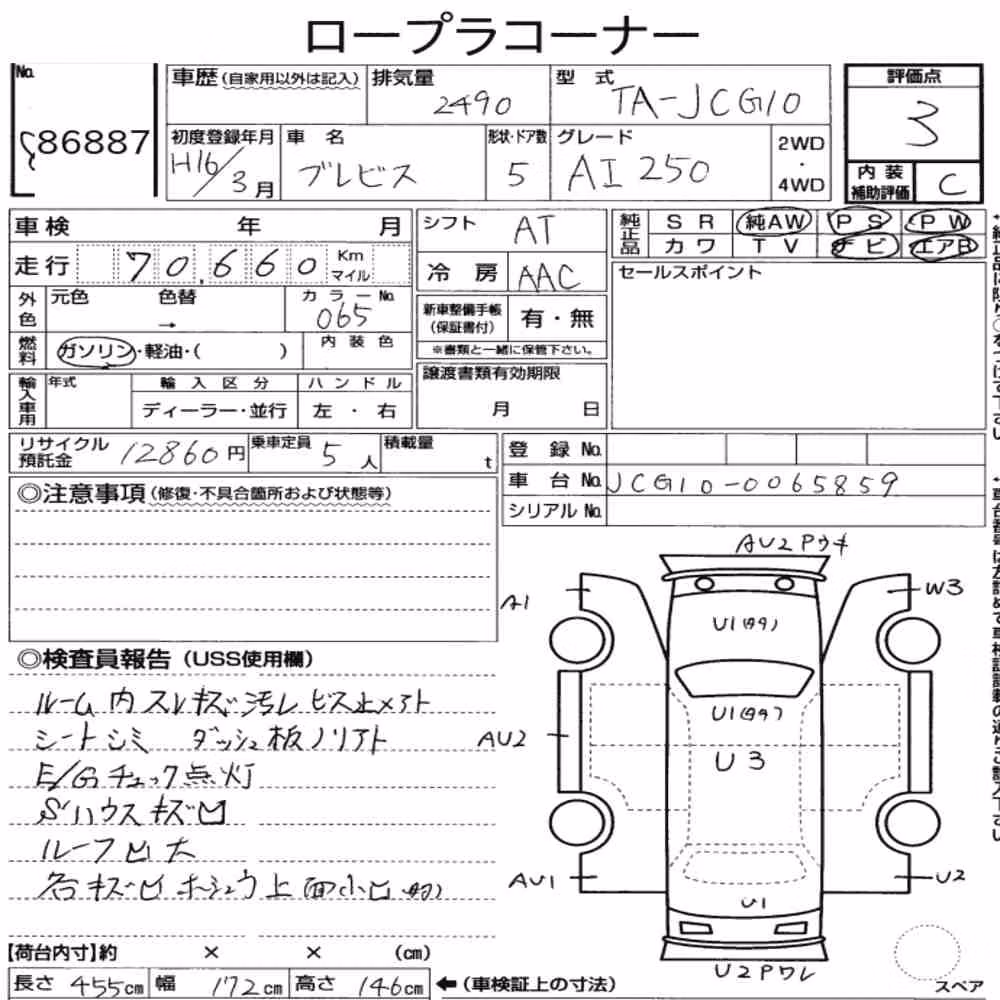 ロープラコーナー
No.
86887
車歴(自家用以外は記入)
排気量
2490
型式
TA-JCG10
評価点
3
初度登録年月
H16/3月
車名
ブレビス
形状・ドア数
5
グレード
AI250
2WD
・
4WD
内装
補助評価
C
車検 年 月
走行 70,660 Km マイル
外色
元色 色替
→
カラーNo.
065
燃料
ガソリン・軽油・( )
内装色
輸入車用
年式
輸入区分
ディーラー・並行
ハンドル
左・右
シフト AT
冷房 AAC
新車整備手帳
(保証書付)
有・無
※書類と一緒に保管下さい。
譲渡書類有効期限
月 日
純正品
SR 純AW PS PW
カワ TV ナビ エアB
セールスポイント
リサイクル
預託金
12860円
乗車定員
5人
積載量
t
登録No.
車台No. JCG10-0065859
シリアルNo.
◎注意事項(修復・不具合箇所および状態等)
◎検査員報告(USS使用欄)
ルーム内スレキズ汚レビス止メアト
シートシミ ダッシュ板ノリアト
E/Gチェック点灯
S'ハウスキズ凹
ルーフ凹大
各キズ凹ホシュウ上面小凹
AU2Pウキ
A1
W3
U1
U1
AU2
U3
AU1
U2
U1
U2Pワレ
スペア
【荷台内寸】約 × × (cm)
長さ 455cm 幅 172cm 高さ 146cm
←(車検証上の寸法)